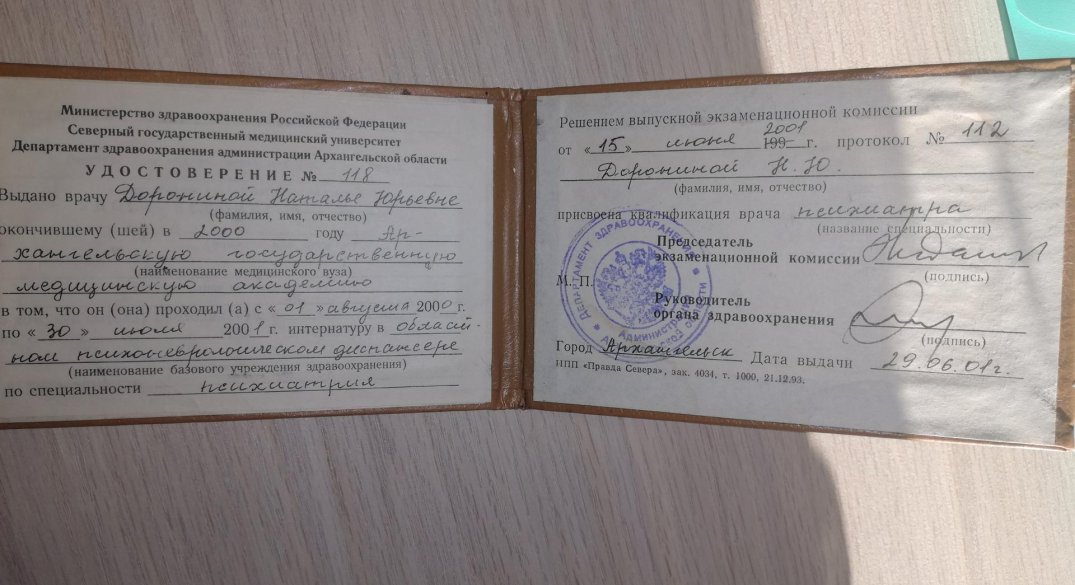 Министерство здравоохранения Российской Федерации
Северный государственный медицинский университет
Департамент здравоохранения администрации Архангельской области
УДОСТОВЕРЕНИЕ № 118
Выдано врачу Дорониной Наталье Юрьевне
(фамилия, имя, отчество)
окончившему (шей) в 2000 году Ар-
хангельскую государственную
(наименование медицинского вуза)
медицинскую академию
в том, что он (она) проходил (а) с «01» августа 2000 г.
по «30» июля 2001 г. интернатуру в област-
ном психоневрологическом диспансере
(наименование базового учреждения здравоохранения)
по специальности психиатрия
Решением выпускной экзаменационной комиссии
от «15» июня 2001 199 г. протокол № 112
Дорониной Н. Ю.
(фамилия, имя, отчество)
присвоена квалификация врача психиатра
(название специальности)
Председатель
экзаменационной комиссии
(подпись)
М. П.
Руководитель
органа здравоохранения
(подпись)
Город Архангельск Дата выдачи 29.06.01г.
ИПП «Правда Севера», зак. 4034, т. 1000, 21.12.93.
ДЕПАРТАМЕНТ ЗДРАВООХРАНЕНИЯ